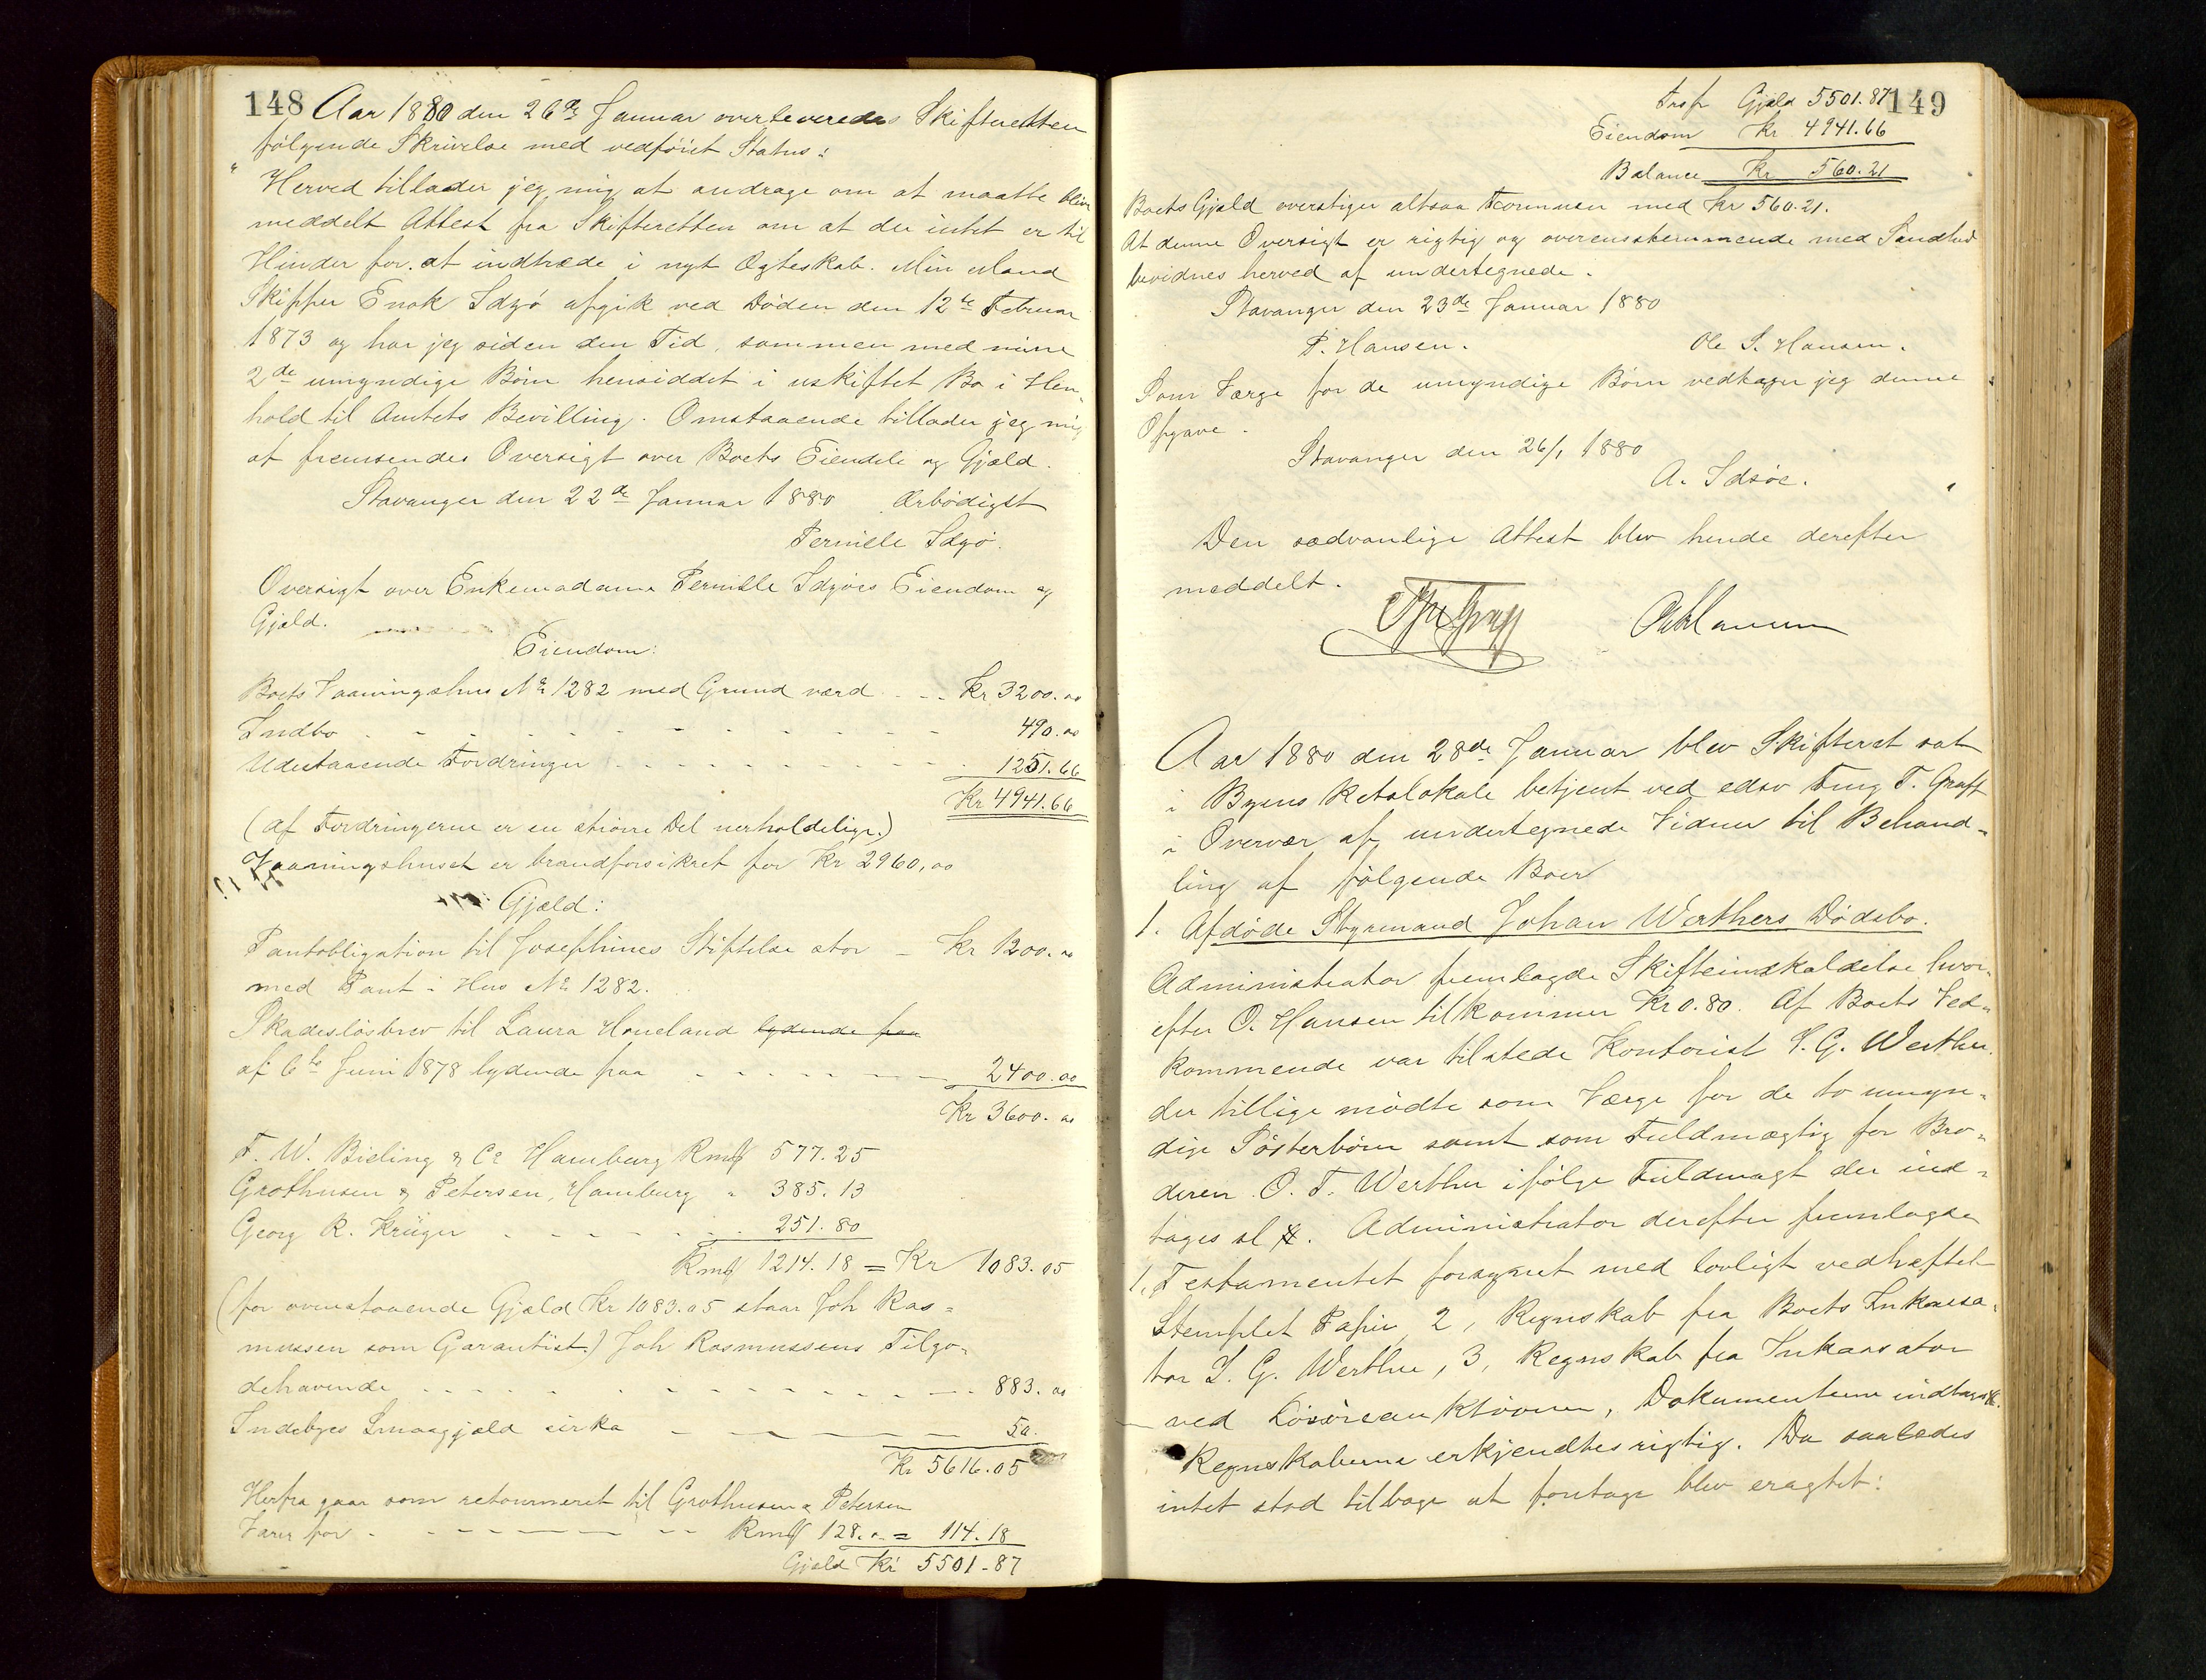 148 Aar 1880 den 26de Januar overleveredes Skifteretten
følgende Skrivelse med vedføiet Status:
" Herved tillader jeg mig at andrage om at maatte blive
meddelt Attest fra Skifteretten om at der intet er til
Hinder for at indtræde i nyt Ægteskab. Min Mand
Skipper Enok Idzø afgik ved Døden den 12te Februar
1873 og har jeg siden den Tid, sammen med mine
2de umyndige Børn hensiddet i uskiftet Bo i Hen-
hold til Amtets Bevilling. Omstaaende tillader jeg mig
at fremsendes Oversigt over Boets Eiendele og Gjæld.
Stavanger den 22de Januar 1880 Ærbødigst
Pernille Idzø.
Oversigt over Enkemadame Pernille Idzøes Eiendom og
Gjæld.
Eiendom:
Boets Vaaningshus No 1282 med Grund værd - - Kr 3200.00
Indbo - - - - - - - - - 490.00
Udestaaende Fordringer - - - - - - - - 1251.66
Kr 4941.66
(Af Fordringerne er en større Del uerholdelige.)
Vaaningshuset er brandforsikret for Kr 2960,00
Gjæld:
Pantobligation til Josephines Stiftelse stor - Kr 1200.00
med Pant i Hus No 1282.
Skadesløsbrev til Laura Honeland lydende paa
af 6te Juni 1878 lydende paa - - - - - - 2400.00
Kr 3600.00
F. W. Bieling & Co Hamburg Rmk 577.25
Grothusen & Petersen, Hamburg " 385.13
Georg R. Krüger - - - - - - 251.80
Rmk 1214.18 = Kr 1083.05
(for ovenstaaende Gjæld Kr 1083.05 staar Joh Ras=
mussen som Garantist.) Joh Rasmussens Tilgo-
dehavende - - - - - - - - - - - 883.00
Indebyes Smaagjæld cirka - - - - - 50.
Kr 5616.05
Herfra gaar som retourneret til Grothusen & Petersen
Varer for - - - - - - - Rmk 128.00 = 114.18
Gjæld Kr 5501-87
149
Trsp Gjæld 5501.87
Eiendom Kr 4941.66
Balance Kr 560.21
Boets Gjæld overstiger altsaa Formuen med Kr 560.21.
At denne Oversigt er rigtig og overensstemmende med Sandhed
bevidnes herved af undertegnede.
Stavanger den 23de Januar 1880
P. Hansen. Ole S. Hansen.
Som Værge for de umyndige Børn vedtager jeg denne
Opgave.
Stavanger den 26/1 1880
A. Idsøe.
Den sædvanlige Attest blev hende derefter
meddelt.
Aar 1880 den 28de Januar blev Skifteret sat
i Byens Retslokale betjent ved edsv Fmg T. Graff
i Overvær af undertegnede Vidner til Behand-
ling af følgende Boer
1. Afdøde Styrmand Johan Werthers Dødsbo.
Administrator fremlagde Skifteindkaldelse hvor-
efter O. Hansen tilkommer Kr 0.80. Af Boets Ved-
kommende var tilstede Kontorist I. G. Werther
der tillige mødte som Værge for de to umyn-
dige Søsterbørn samt som Fuldmægtig for Bro-
deren O. T. Werther ifølge Fuldmagt der ind-
tages sl . Administrator derefter fremlagde
1, Testamentet forsynet med lovligt vedhæftet
Stemplet Papir 2, Regnskab fra Boets Inkassa-
tor I. G. Werther, 3, Regnskab fra Inkassator
ved Løsøreauktionen, Dokumenterne indtages
Regnskaberne erkjendtes rigtig. Da saaledes
intet stod tilbage at foretage blev eragtet: